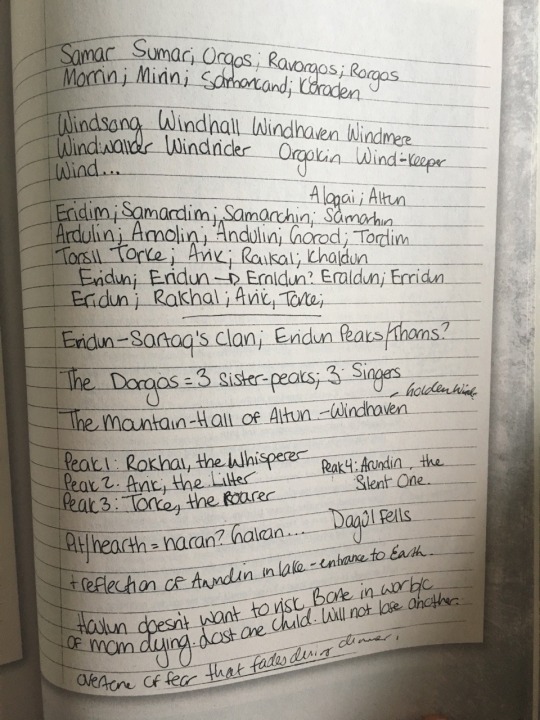 Samar Sumar; Orgos; Ravorgos; Rorgos
Morrin; Mirin; Samorcand; Koraden
Windsong Windhall Windhaven Windmere
Windwalker Windrider Orgokin Wind-Keeper
Wind...
Alagai; Altun
Eridim; Samardim; Samarchin; Samarhin
Ardulin; Arnolin; Andulin; Gorod; Tordim
Torsil Torke; Arik; Raikal; Khaldun
Eridun; Eridun → Ernldun? Eraldun; Erridun
Eridun; Rokhal; Arik, Torke;
Eridun-Sartaq's Clan; Eridun Peaks/Thoms?
The Dorgos = 3 sister-peaks; 3 Singers
- Golden Wind
The Mountain-Hall of Altun -Windhaven
Peak 1: Rokhal, the Whisperer
Peak 2: Arik, the Lilter
Peak 3: Torke, the Roarer
Peak 4: Arundin, the
Silent One.
Dagul Fells
hearth = naran? Galran...
+ reflection of Arundin in lake - entrance to Earth.
doesn't want to risk Bone in
of mom dying. Lost one child. Will not lose another.
overtone of fear that fades during dinner.